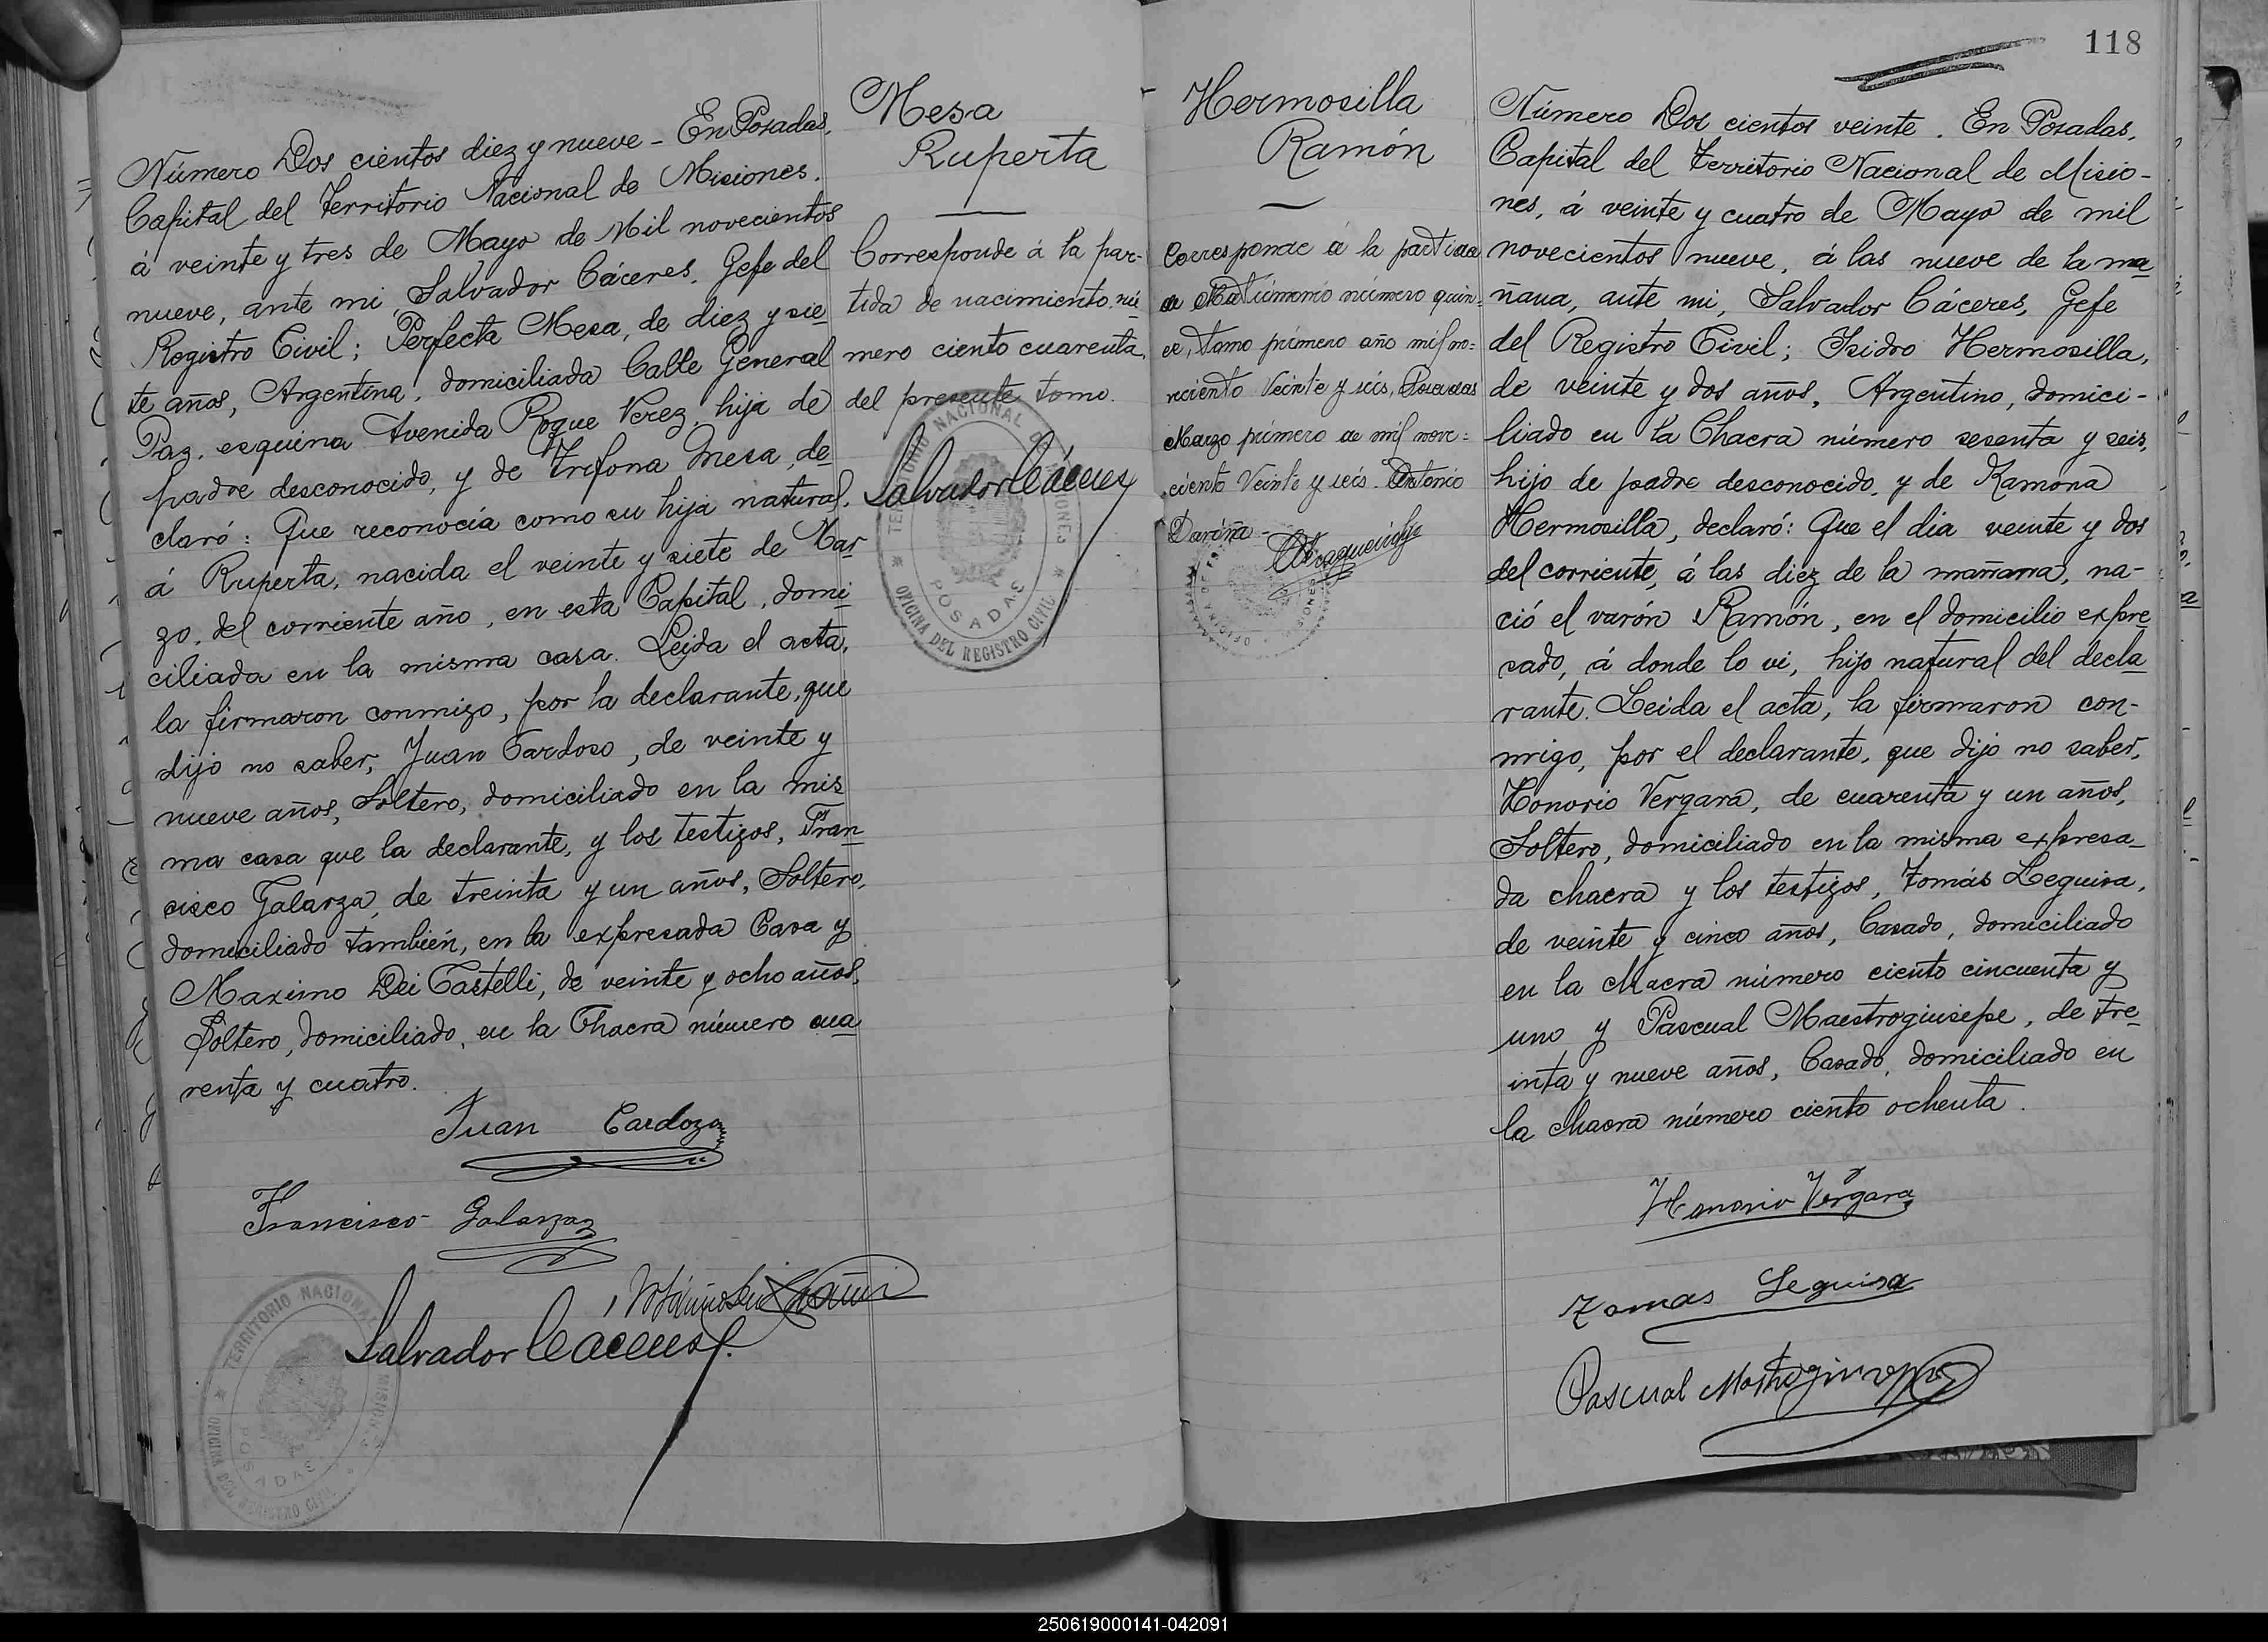 Número Dos cientos diez y nueve - En Posadas,
Capital del Territorio Nacional de Misiones.
á veinte y tres de Mayo de Mil novecientos
nueve, ante mi, Salvador Cáceres, Gefe del
Registro Civil; Perfecta Mesa, de diez y sie
te años, Argentina, domiciliada Calle General
Paz, esquina Avenida Roque Perez, hija de
padre desconocido, y de Trifona Mesa, de
claró: Que reconocía como su hija natural,
á Ruperta, nacida el veinte y siete de Mar
zo, del corriente año, en esta Capital, domi
ciliada en la misma casa. Leida el acta,
la firmaron conmigo, por la declarante, que
dijo no saber, Juan Cardoso, de veinte y
nueve años, Soltero, domiciliado en la mis
ma casa que la declarante, y los testigos, Fran
cisco Galarza, de treinta y un años, Soltero,
domiciliado también, en la expresada Casa y
Maximo Dei Castelli, de veinte y ocho años,
Soltero, domiciliado, en la Chacra número cua
renta y cuatro.
Juan Cardozo
Francisco Galarza
Salvador Cáceres
TERRITORIO NACIONAL DE MISIONES
POSADAS
OFICINA DEL REGISTRO CIVIL
Mesa
Ruperta
Corresponde á la par-
tida de nacimiento nú
mero ciento cuarenta,
del presente tomo.
Salvador Cáceres
TERRITORIO NACIONAL DE MISIONES
POSADAS
OFICINA DEL REGISTRO CIVIL
Hermosilla
Ramón
Corresponde á la partida
de Matrimonio número quin-
ce, Tomo primero año mil no-
veciento Veinte y seis, Posadas
Marzo primero de mil nove-
ciento Veinte y seis. Antonio
118
Número Dos cientos veinte. En Posadas,
Capital del Territorio Nacional de Misio-
nes, á veinte y cuatro de Mayo de mil
novecientos nueve, á las nueve de la ma
ñana, ante mi, Salvador Cáceres, Gefe
del Registro Civil; Isidro Hermosilla,
de veinte y dos años, Argentino, domici-
liado en la Chacra número sesenta y seis,
hijo de padre desconocido, y de Ramona
Hermosilla, declaró: Que el dia veinte y dos
del corriente, á las diez de la mañana, na-
ció el varón Ramón, en el domicilio expre
sado, á donde lo vi, hijo natural del decla
rante. Leida el acta, la firmaron con-
migo, por el declarante, que dijo no saber,
Honorio Vergara, de cuarenta y un años,
Soltero, domiciliado en la misma expresa-
da chacra y los testigos, Tomás Leguisa,
de veinte y cinco años, Casado, domiciliado
en la chacra número ciento cincuenta y
uno y Pascual Maestrogiusepe, de tre-
inta y nueve años, Casado, domiciliado en
la chacra número ciento ochenta.
Honorio Vergara
Tomas Leguisa
Pascual
250619000141-042091